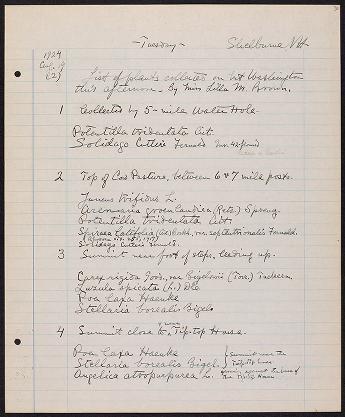 1924
Aug. 19
(2)
—Tuesday— Shelburne NH.
List of plants collected on Mt Washington
this afternoon. By Miss Lilla M.
1 Collected by 5-mile Water Hole.
Potentilla tridentata Ait.
Solidago Cutleri Fernald
2 Top of Cow Pasture, between 6 & 7 mile posts.
Juncus trifidus L.
Arenaria groenlandica (Retz.) Spreng.
Potentilla tridentata Ait.
Spiraea latifolia (Ait) Borkh. var. septentrionalis Fernald.
Solidago Cutleri Fernald.
3 Summit near foot of steps, leading up.
Carex rigida Good. var. Bigelovii (Torr.) Tuckerm.
Luzula spicata (L.) DC.
Poa laxa Haenke
Stellaria borealis Bigel.
4 Summit close to Tip-top House.
Poa laxa Haenke
Stellaria borealis Bigel.
Angelica atropurpurea L.
Summit near the
Tip-top House